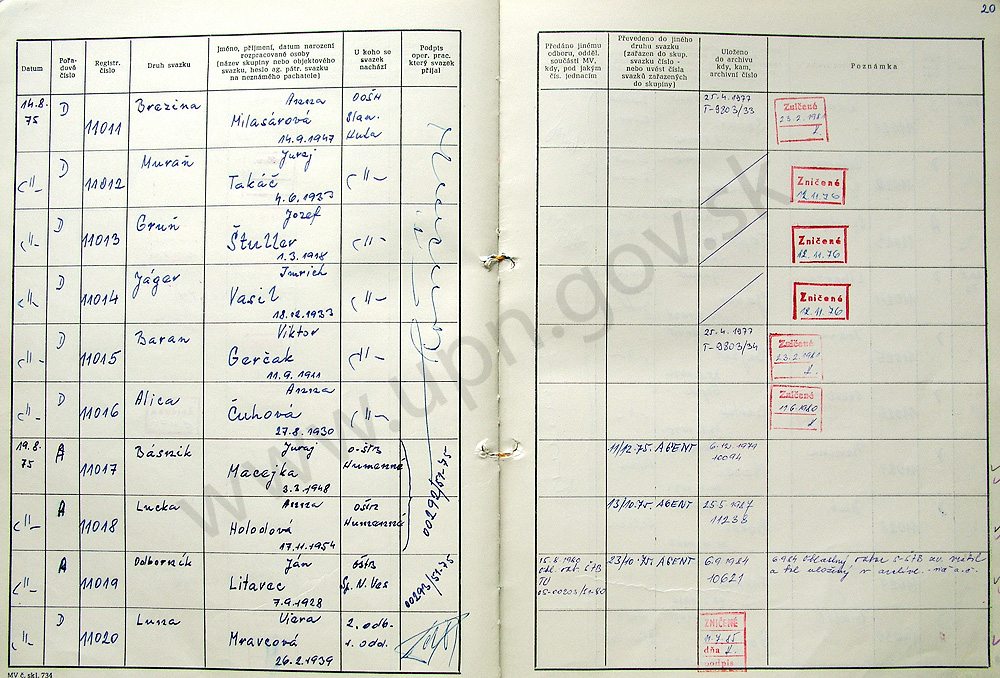 20
Datum
Pořa-
dové
číslo
Registr.
číslo
Druh svazku
Jméno, příjmení, datum narození
rozpracované osoby
(název skupiny nebo objektového
svazku, heslo ag. pátr. svazku
na neznámého pachatele)
U koho se
svazek
nachází
Podpis
oper. prac.
který svazek
přijal
Předáno jinému
odboru, odděl.
součásti MV,
kdy, pod jakým
čís. jednacím
Převedeno do jiného
druhu svazku
(zařazen do skup.
svazku číslo -
nebo uvést čísla
svazků zařazených
do skupiny)
Uloženo
do archivu
kdy, kam,
archivní číslo
Poznámka
14.8.
75
D
11011
Brezina
Anna
Milasárová
14.9.1947
OOŠB
Slav.
Huta
25.4.1977
T-9803/33
Zničené
23.2.1981
-"-
D
11012
Muraň
Juraj
Takáč
4.6.1933
-"-
Zničené
12.11.76
-"-
D
11013
Gruň
Jozef
Štuller
1.3.1918
-"-
Zničené
12.11.76
-"-
D
11014
Jáger
Imrich
Vasil
18.12.1933
-"-
Zničené
12.11.76
-"-
D
11015
Baran
Viktor
Gerčak
11.9.1911
-"-
25.4.1977
T-9803/34
Zničené
23.2.1981
-"-
D
11016
Alica
Anna
Čuhová
27.8.1930
-"-
Zničené
11.6.1980
19.8.
75
A
11017
Básnik
Juraj
Macejka
3.3.1948
O-ŠTB
Humenné
00292/51-75
11/12-75. AGENT
10094
-"-
A
11018
Lucka
Anna
Holodová
17.11.1954
OŠTB
Humenné
13/10-75. AGENT
11238
-"-
A
11019
Odborník
Ján
Litavec
7.9.1928
OŠTB
Sp. N. Ves
00293/51-75
15.8.1980
05-00203/51-80
23/10-75. AGENT
6.9.1984
10621
-"-
D
11020
Luna
Viera
Mravcová
26.2.1939
2. odb.
1. odd.
ZNIČENÉ
dňa
podpis
MV č. skl. 734
www.upn.gov.sk